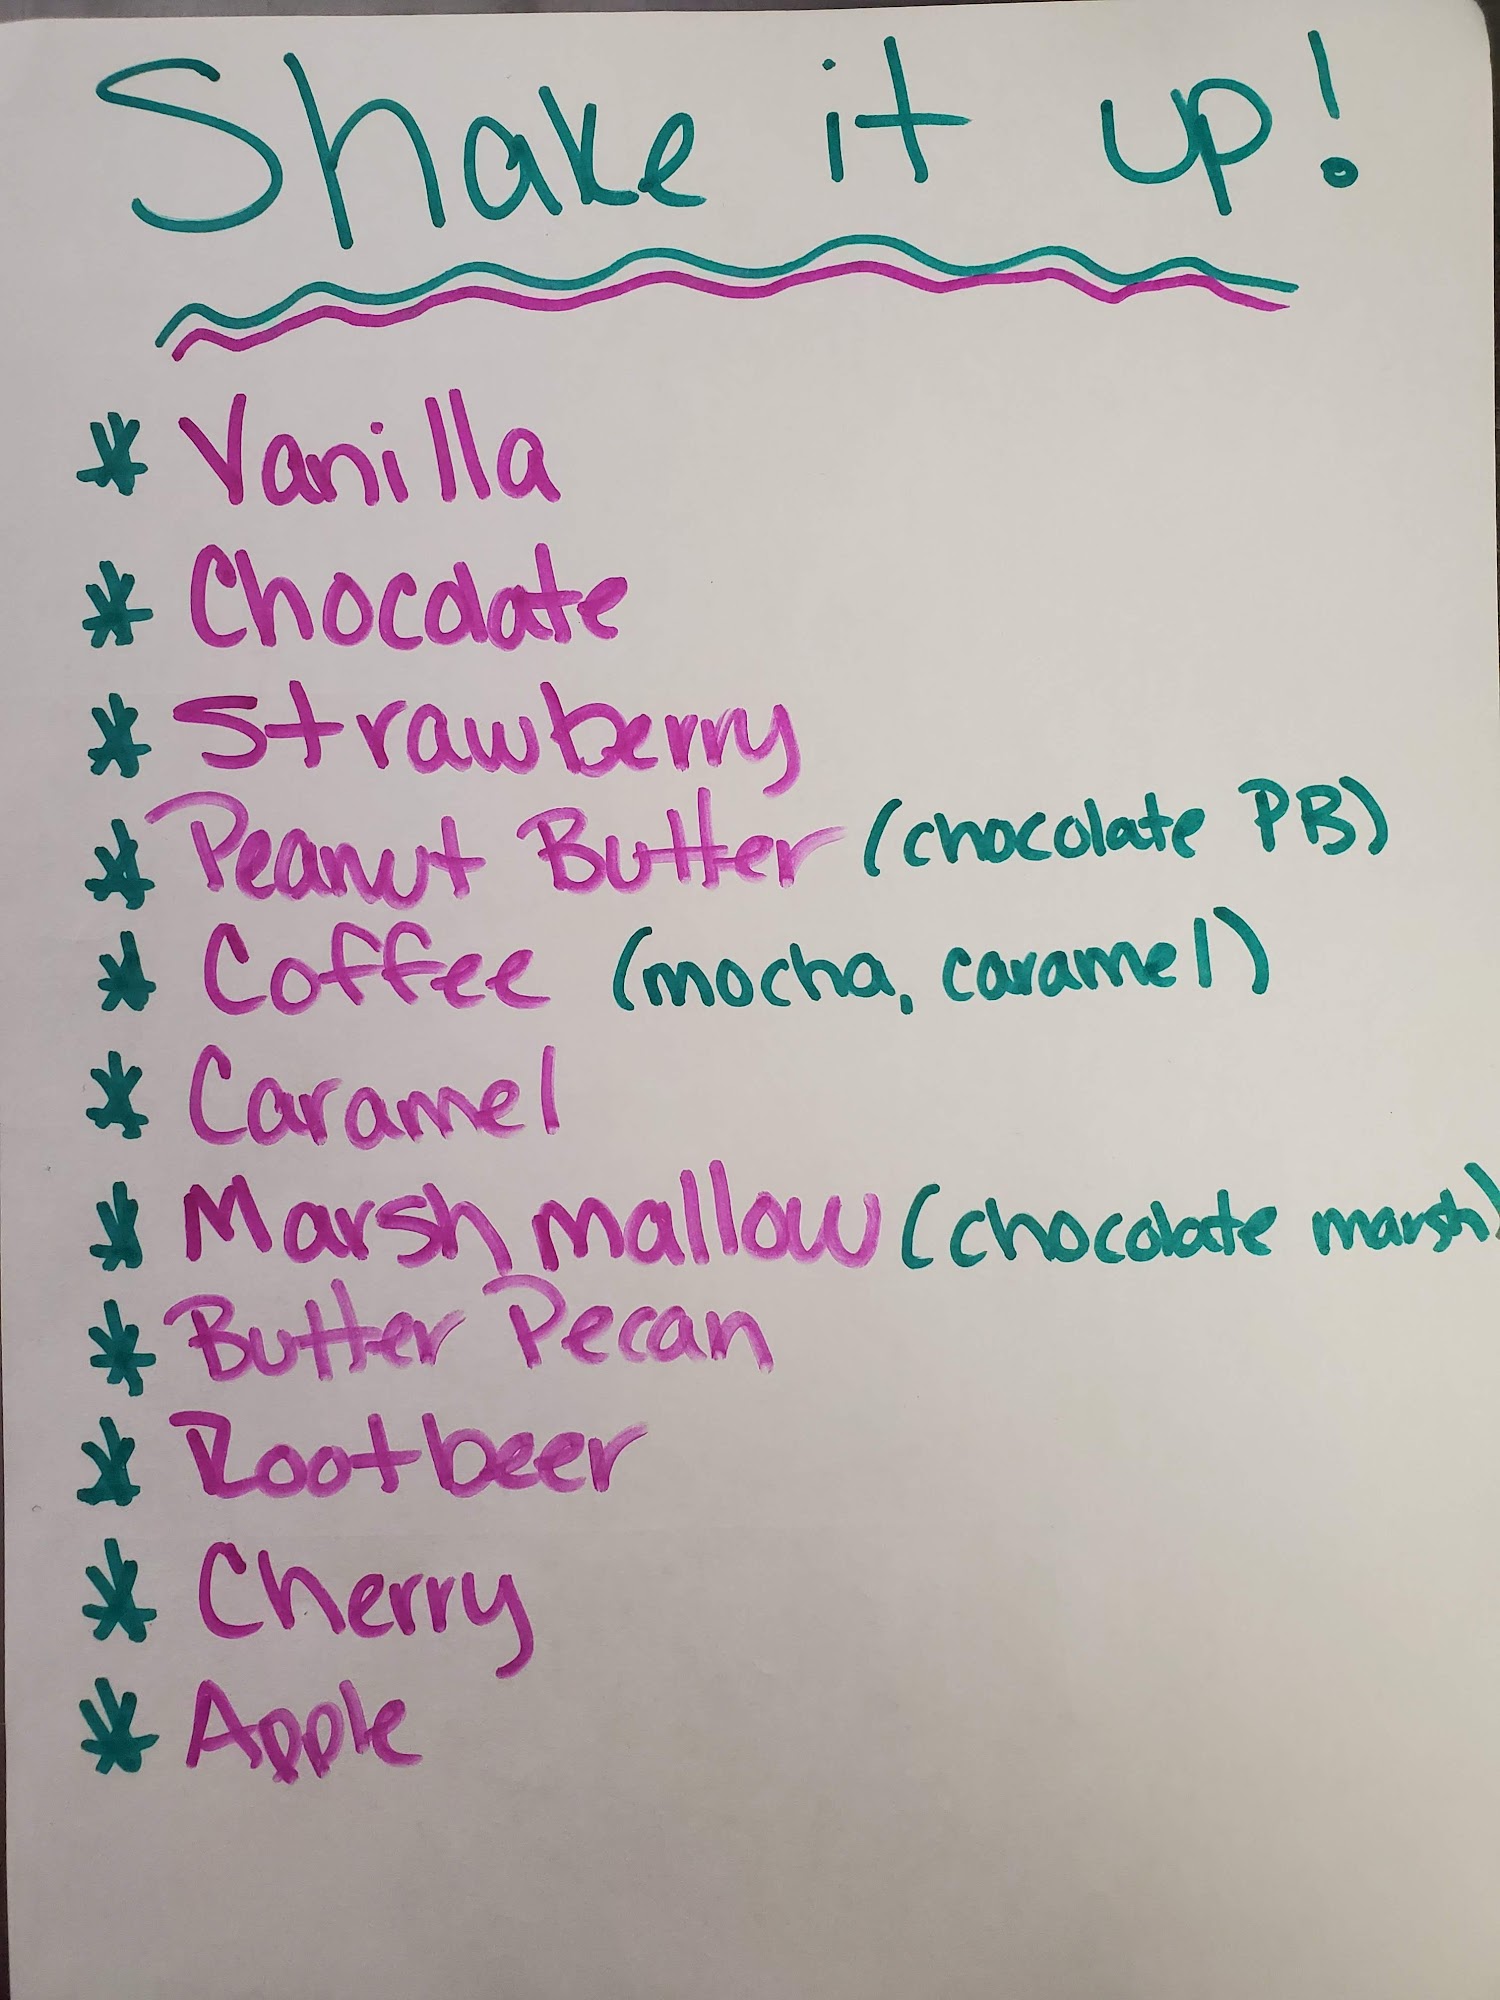 Shake it up!
* Vanilla
* Chocolate
* Strawberry
* Peanut Butter (chocolate PB)
* Coffee (mocha, caramel)
* Caramel
* Marshmallow (chocolate marsh)
* Butter Pecan
* Rootbeer
* Cherry
* Apple